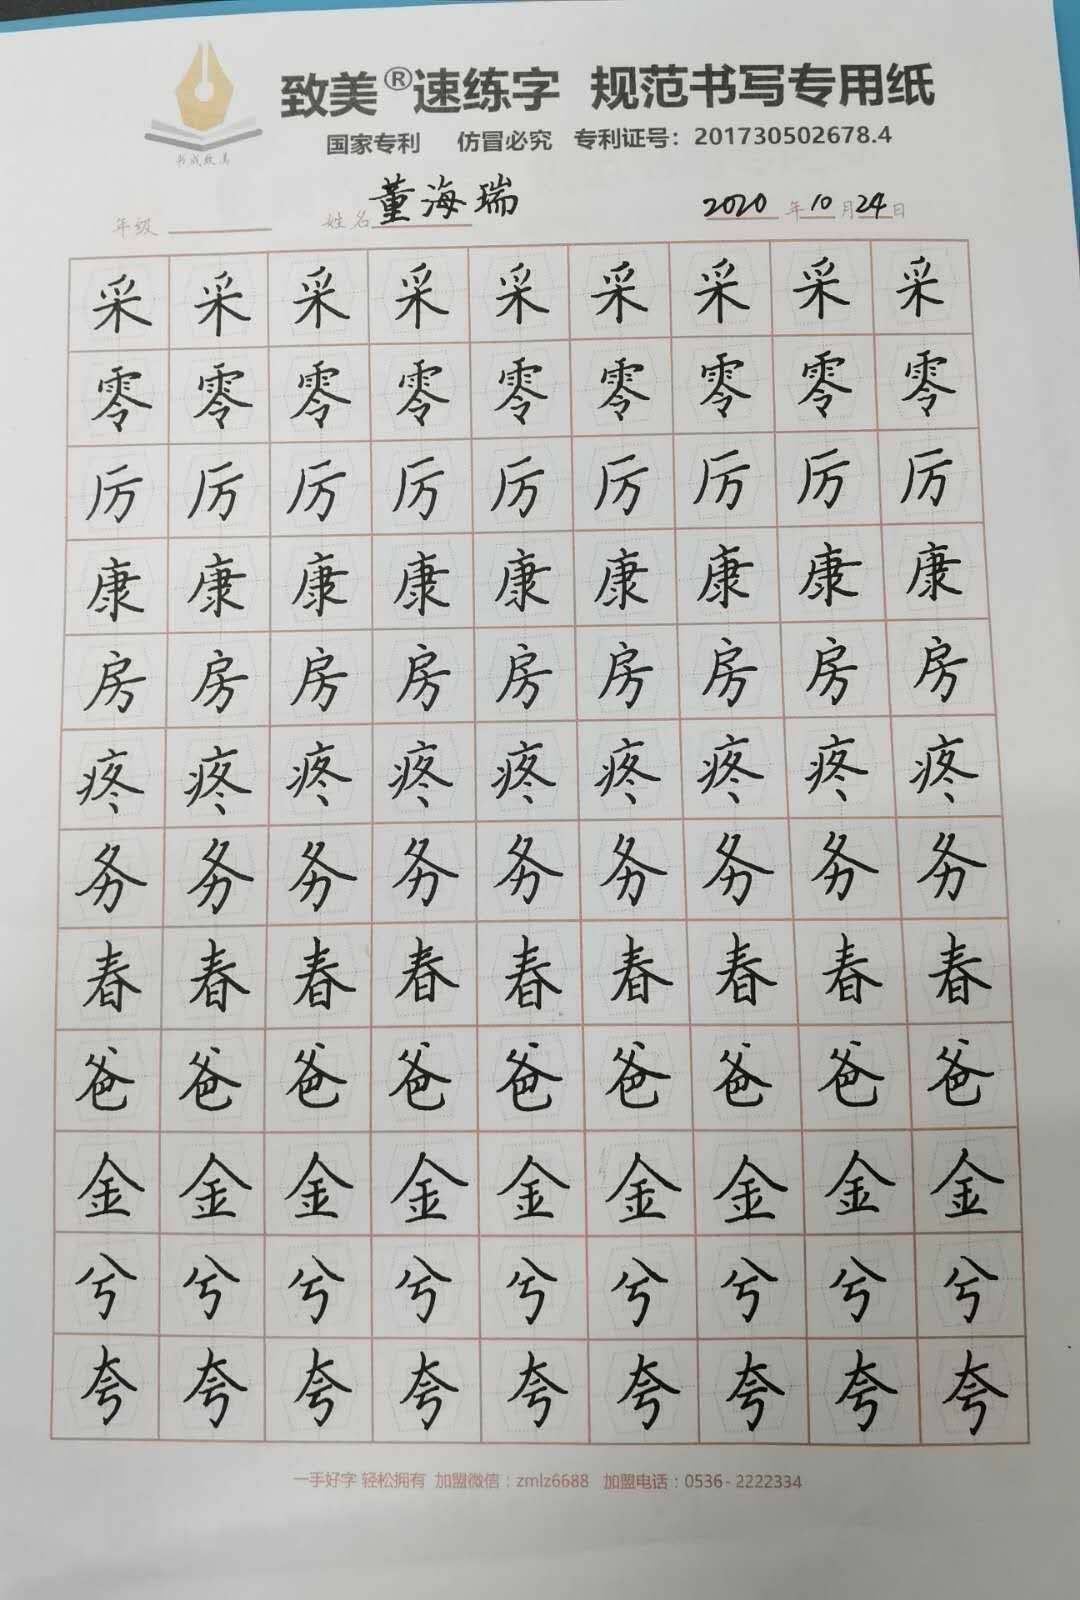 致美®速练字 规范书写专用纸
国家专利 仿冒必究 专利证号：201730502678.4
书成致美
年级 姓名 董海瑞 2020 年 10 月 24 日
采 采 采 采 采 采 采 采 采
零 零 零 零 零 零 零 零 零
厉 厉 厉 厉 厉 厉 厉 厉 厉
康 康 康 康 康 康 康 康 康
房 房 房 房 房 房 房 房 房
疼 疼 疼 疼 疼 疼 疼 疼 疼
务 务 务 务 务 务 务 务 务
春 春 春 春 春 春 春 春 春
爸 爸 爸 爸 爸 爸 爸 爸 爸
金 金 金 金 金 金 金 金 金
兮 兮 兮 兮 兮 兮 兮 兮 兮
夸 夸 夸 夸 夸 夸 夸 夸 夸
一手好字 轻松拥有 加盟微信：zmlz6688 加盟电话：0536-2222334